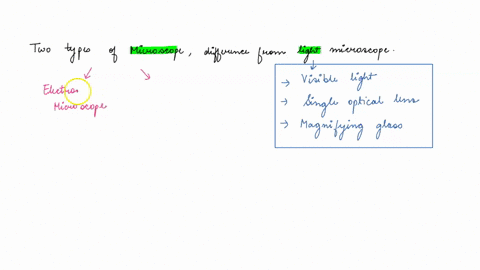 Two types of Microscope, difference from light microscope.
Electron
Microscope
→ Visible light
→ Single optical lens
→ Magnifying glass